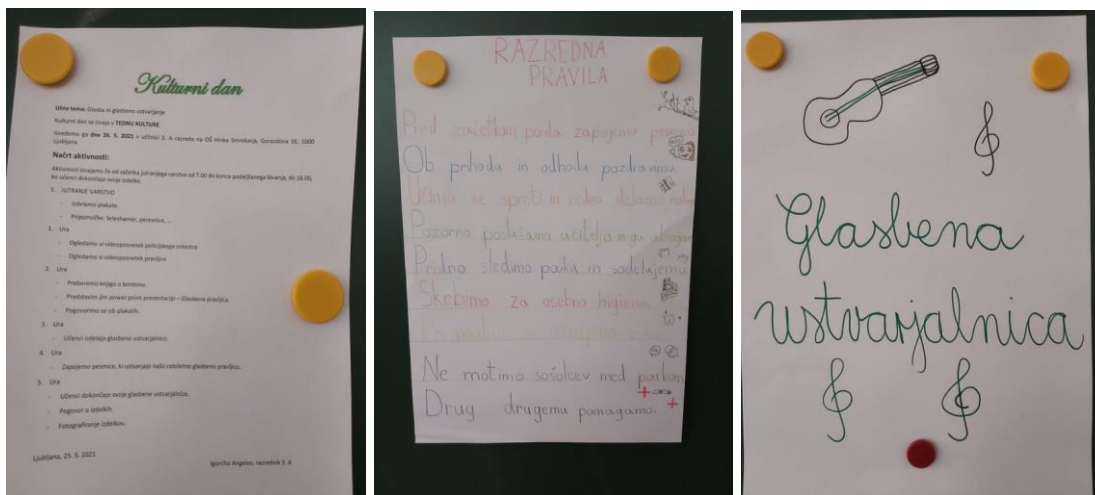 Kulturni dan
Učna tema: Glasba in glasbeno ustvarjanje
Kulturni dan se izvaja v TEDNU KULTURE.
Izvedemo ga dne 26. 5. 2021 v učilnici 3. A razreda na OŠ Hinka Smrekarja, Gorazdova 16, 1000
Ljubljana
Načrt aktivnosti:
Aktivnosti izvajamo že od začetka jutranjega varstva od 7.00 do konca podaljšanega bivanja, do 16.00,
ko učenci dokončajo svoje izdelke.
1. JUTRANJE VARSTVO
- Izdelamo plakate.
- Pripomočke: šeleshamer, peresnice, ...
1. Ura
- Ogledamo si videoposnetek policijskega orkestra
- Ogledamo si videoposnetek pravljice
2. Ura
- Preberemo knjigo o bontonu.
- Predstavim jim power point prezentacijo – Glasbena pravljica.
- Pogovorimo se ob plakatih.
3. Ura
- Učenci izdelajo glasbeno ustvarjalnico.
4. Ura
- Zapojemo pesmice, ki ustvarjajo našo celoletno glasbeno pravljico.
5. Ura
- Učenci dokončajo svoje glasbene ustvarjalnice.
- Pogovor o izdelkih.
- Fotografiranje izdelkov.
Ljubljana, 25. 5. 2021
Igorcho Angelov, razrednik 3. A
RAZREDNA
PRAVILA
Pred začetkom pouka zapojemo
Ob prihodu in odhodu pozdravimo.
Učimo se sproti in redno
Pozorno poslušamo učitelja in ga ubogamo
Pridno sledimo pouku in sodelujemo.
Skrbimo za osebno higieno.
Ne motimo sošolcev med poukom
Drug drugemu pomagamo.
Glasbena
ustvarjalnica